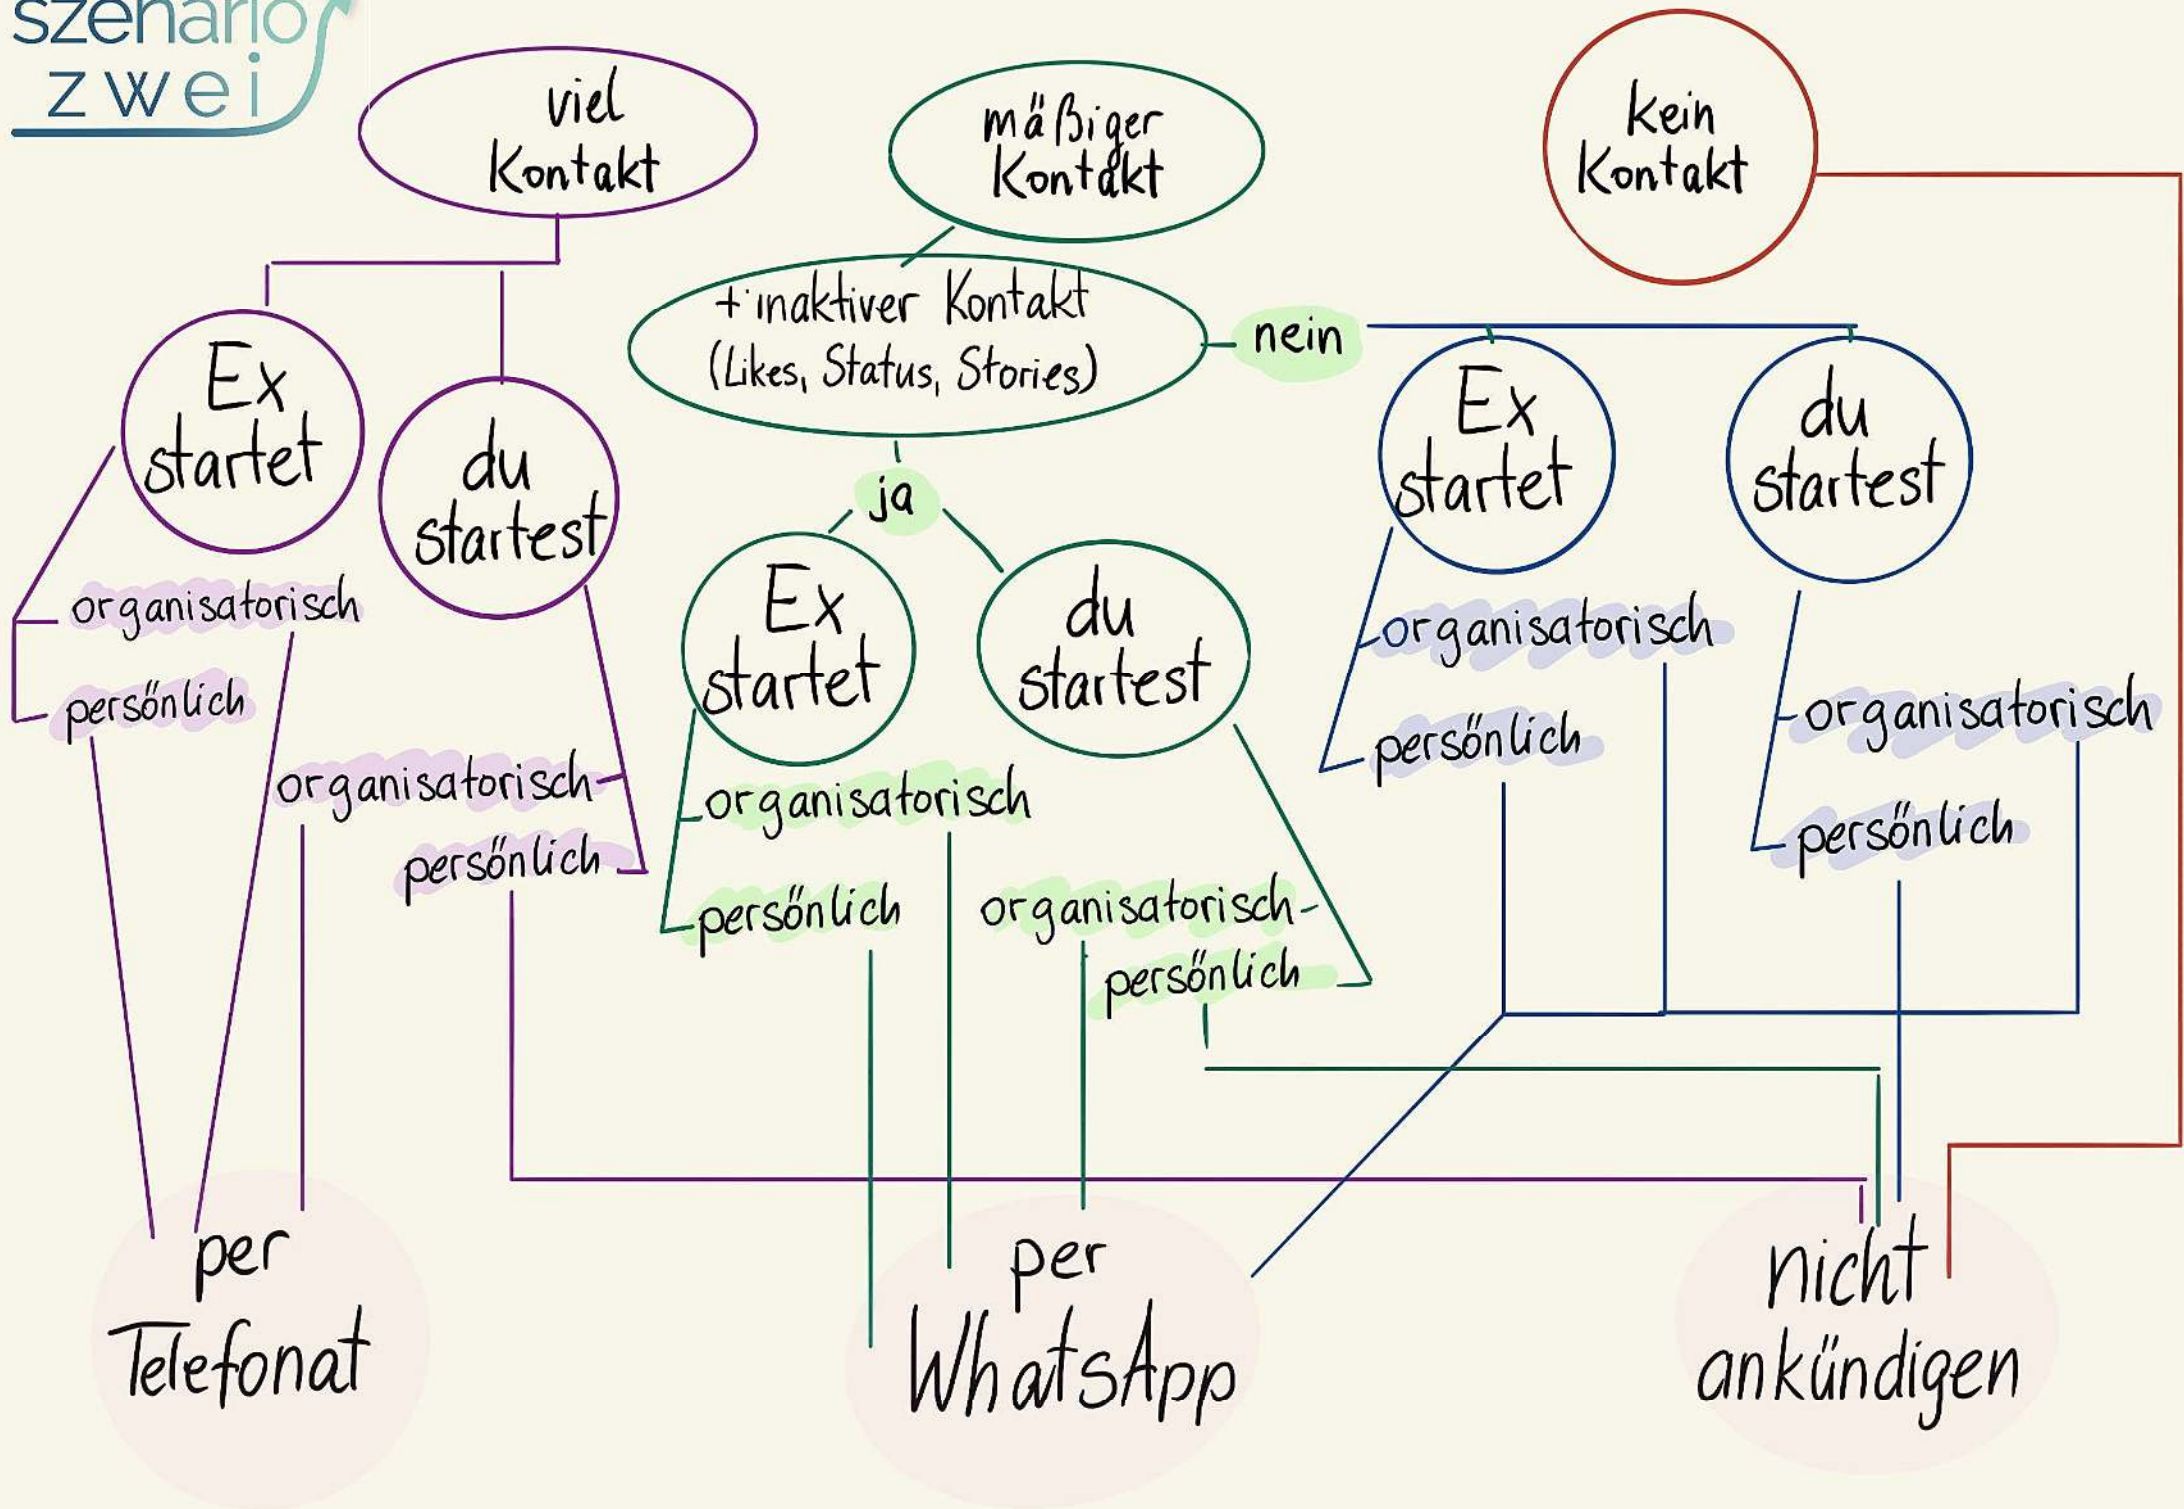 szenario
zwei
viel
Kontakt
mäßiger
Kontakt
kein
Kontakt
+ inaktiver Kontakt
(Likes, Status, Stories)
nein
ja
Ex
startet
du
startest
organisatorisch
persönlich
organisatorisch
persönlich
Ex
startet
du
startest
organisatorisch
persönlich
organisatorisch
persönlich
Ex
startet
du
startest
organisatorisch
persönlich
organisatorisch
persönlich
per
Telefonat
per
WhatsApp
nicht
ankündigen